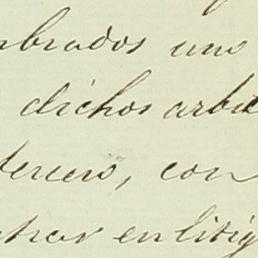 mbrados uno
dichos arbit
terceros, con
char en litig